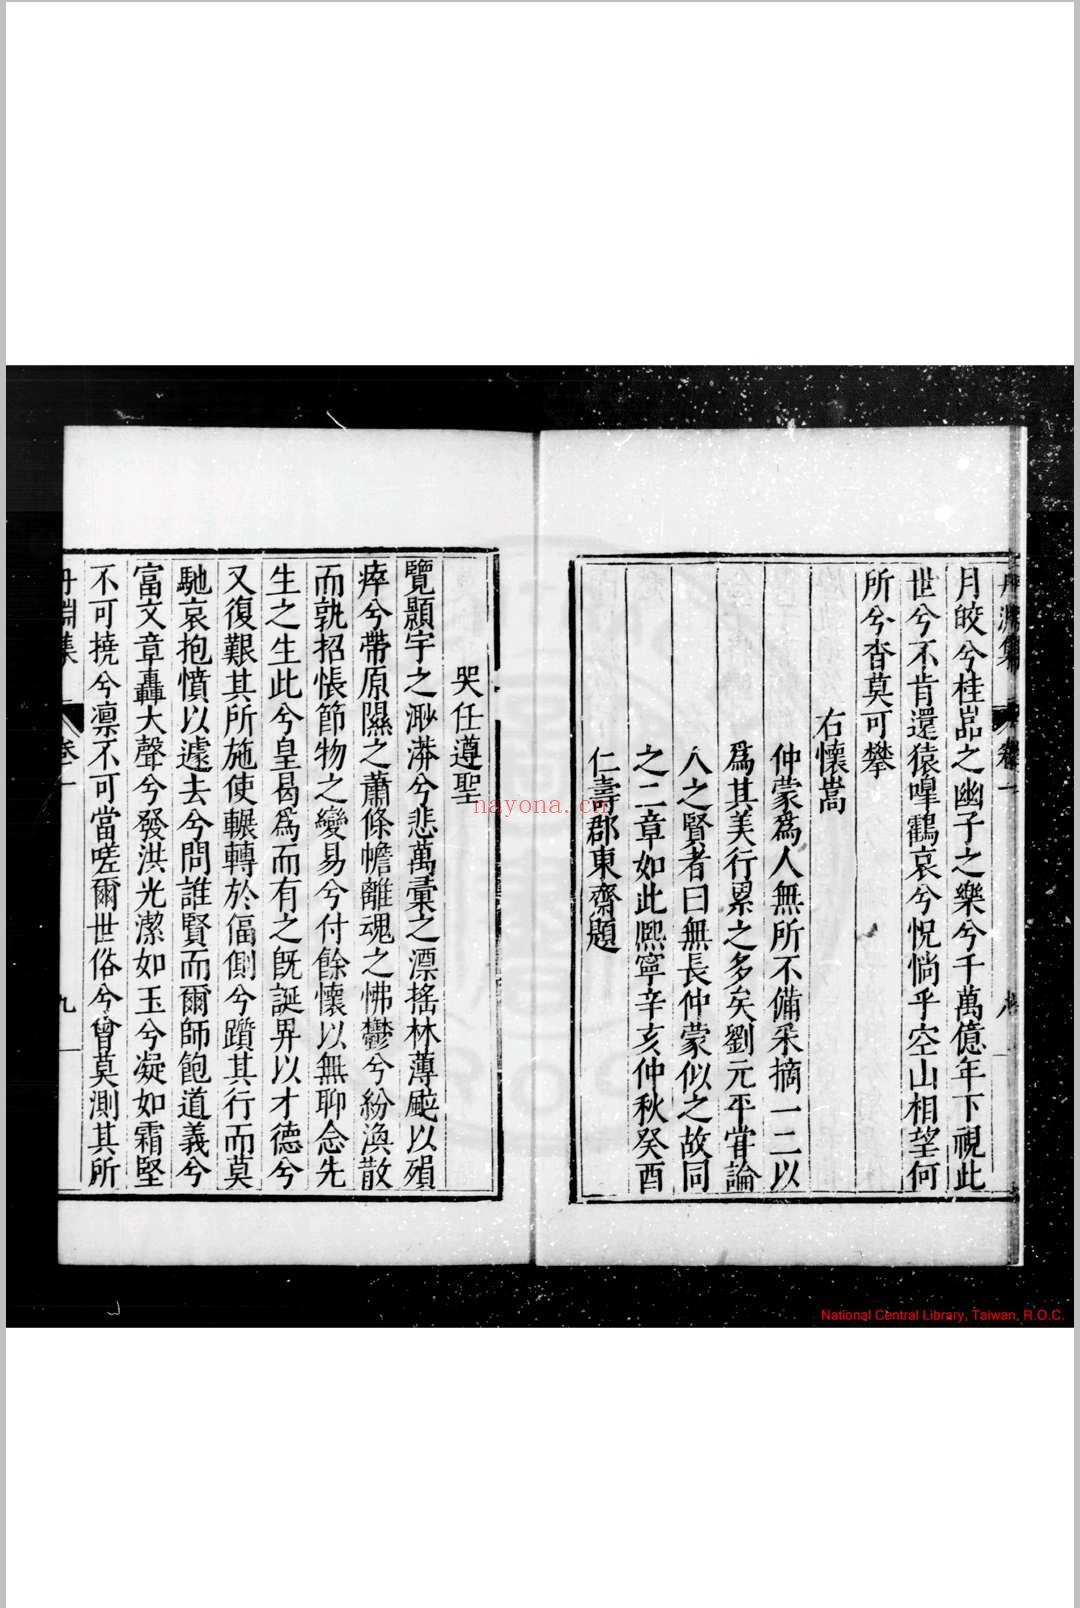 月皎兮桂嵓之幽子之樂兮千萬億年下視此
世兮不肯還猿嘷鶴哀兮怳惝乎空山相望何
所兮杳莫可攀
右懷嵩
仲蒙為人無所不備采摘一二以
爲其美行累之多矣劉元平甞論
人之賢者曰無長仲蒙似之故同
之二章如此熈寧辛亥仲秋癸酉
仁壽郡東齋題
哭任遵聖
覽顥宇之渺漭兮悲萬彙之漂搖林薄颭以殞
瘁兮帶原隰之蕭條幨離魂之怫鬱兮紛渙散
而孰招悵節物之變易兮付餘懷以無聊念先
生之生此兮皇曷爲而有之旣誕畀以才德兮
又復艱其所施使輾轉於偪側兮躓其行而莫
馳哀抱憤以遽去兮問誰賢而爾師飽道義兮
富文章轟大聲兮發洪光潔如玉兮凝如霜堅
不可撓兮凛不可當嗟爾世俗兮曾莫測其所
丹淵集 卷一 九
nayona.cn
National Central Library, Taiwan, R.O.C.